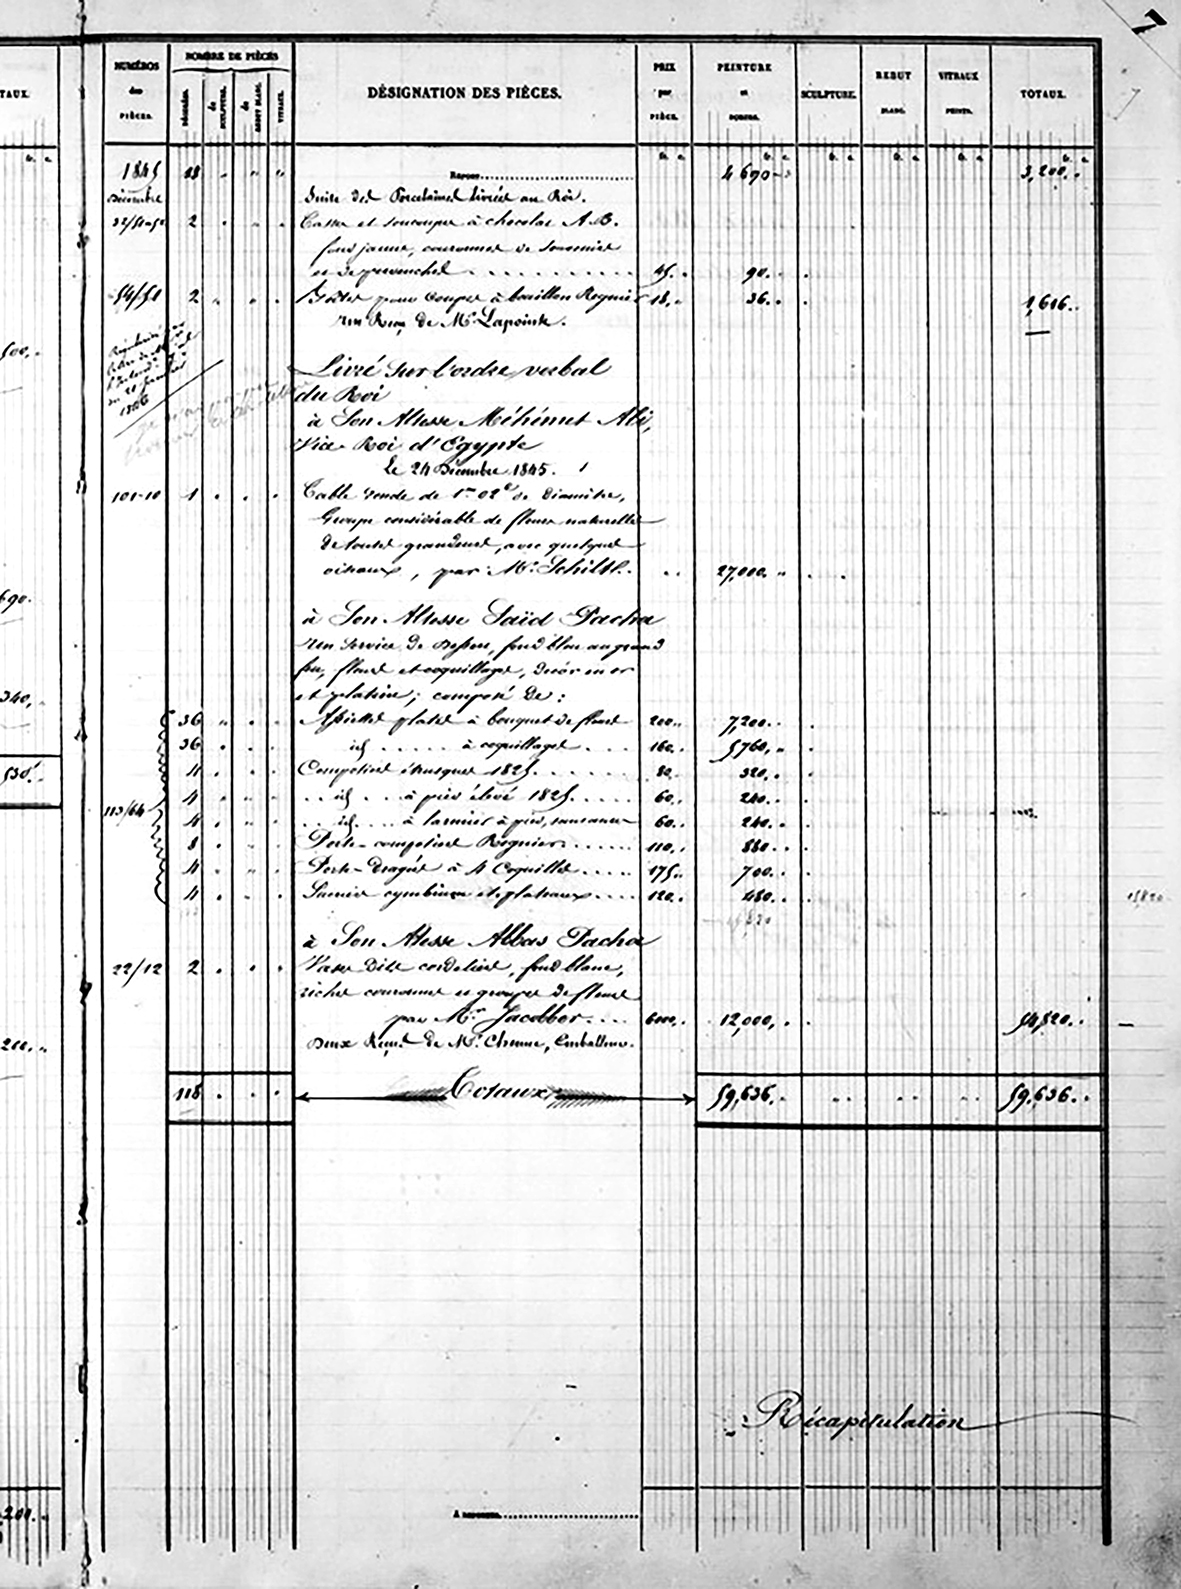 7
NUMÉROS des PIÈCES.
NOMBRE DE PIÈCES
de SCULPTURE. de REBUT BLANC. VITRAUX.
DÉSIGNATION DES PIÈCES.
PRIX par PIÈCE.
PEINTURE et
SCULPTURE.
REBUT BLANC.
VITRAUX PEINTS.
TOTAUX.
TAUX.
fr. c.
1845 Report 4690 3,200
Décembre Suite des Porcelaines livrées au Roi.
2 Tasses et soucoupes à chocolat A.B.
fond jaune, couronnes de
et de pervenches 45 90
54/51 2 pour Coupes à bouillon Regnier 18 36 1,616
un Reçu de Mr. Lapointe.
1846
Livré Sur l'ordre verbal
du Roi
à Son Altesse Méhémet Ali,
Vice-Roi d'Egypte
Le 24 Décembre 1845.
101-10 1 Table ronde de 1m 02c de Diamètre,
Groupe considérable de fleurs naturelles
de toutes grandeurs, avec quelques
oiseaux, par Mr. Schilt. 27,000
à Son Altesse Saïd Pacha
un Service de Dessert, fond bleu au grand
feu, fleurs et coquillages, décor en or
et platine; composé de:
36 Assiettes plates à bouquet de fleurs 200 7,200
36 id à coquillages 160 5760
4 Compotiers étrusques 1825 80 320
4 id à pied élevé 1825 60 240
113/64
4 id à larmier à pied, 60 240
8 Porte-compotiers Regnier 110 880
4 Porte-Dragées à 4 Coquilles 175 700
4 Sucriers cymbium et plateaux 120 480
15820
15820
à Son Altesse Abbas Pacha
22/12 2 Vases dits cordeliers, fond blanc,
riches couronnes et groupes de fleurs
par Mr. Jacobber 6000 12,000 54,820
Deux Reçus de Mr. Chenue, Emballeur.
118 Totaux 59,636 59,636
Récapitulation
A REPORTER
500
690
340
530
200
200